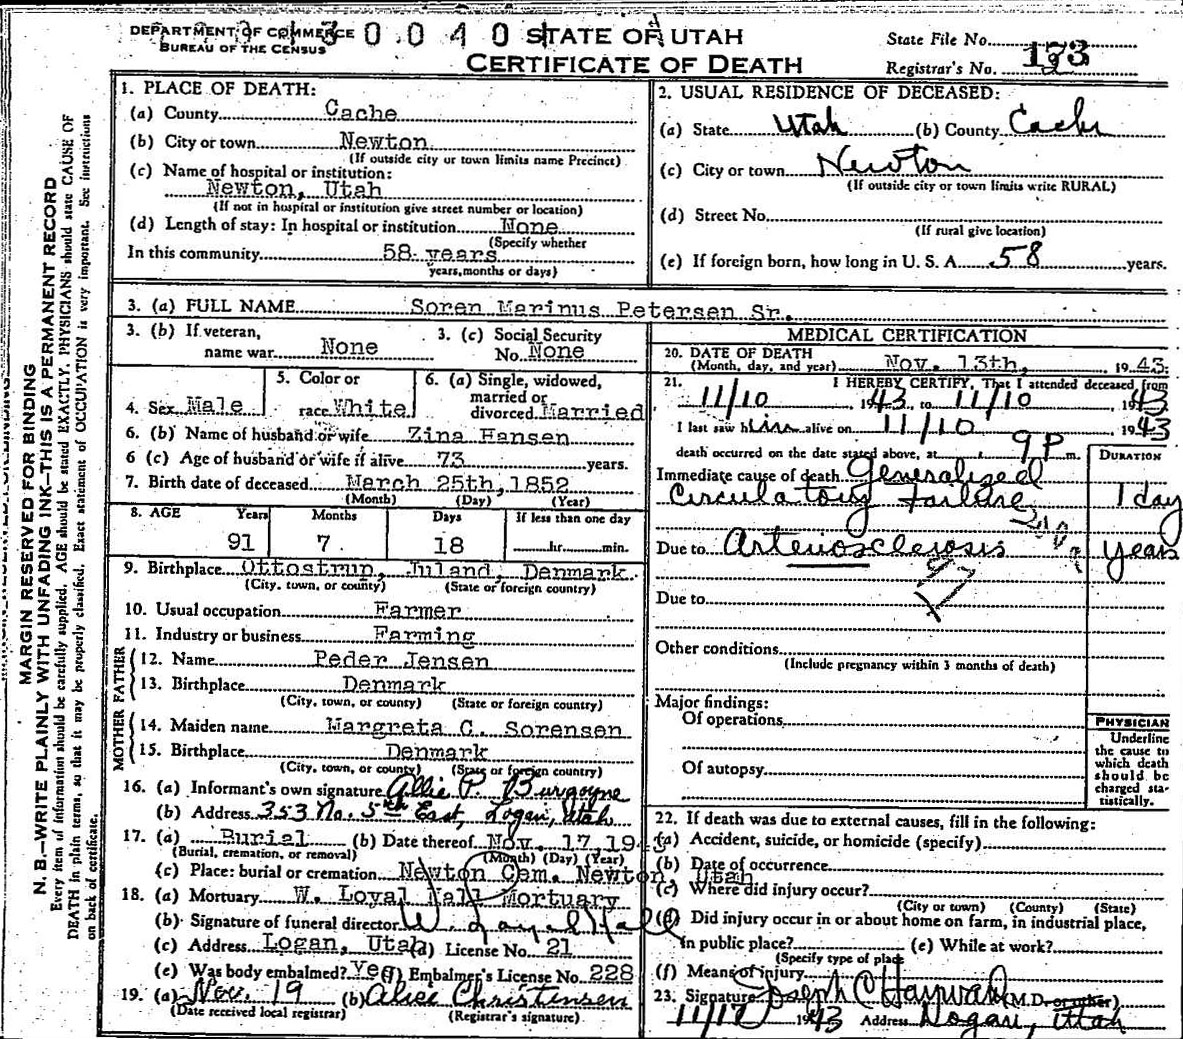 DEPARTMENT OF COMMERCE
BUREAU OF THE CENSUS
30 0 4 0
STATE OF UTAH
CERTIFICATE OF DEATH
State File No. 173
Registrar's No.
MARGIN RESERVED FOR BINDING
N. B.—WRITE PLAINLY WITH UNFADING INK—THIS IS A PERMANENT RECORD
Every item of information should be carefully supplied. AGE should be stated EXACTLY. PHYSICIANS should state CAUSE OF
DEATH in plain terms, so that it may be properly classified. Exact statement of OCCUPATION is very important. See instructions
on back of certificate.
1. PLACE OF DEATH:
(a) County Cache
(b) City or town Newton
(If outside city or town limits name Precinct)
(c) Name of hospital or institution:
Newton, Utah
(If not in hospital or institution give street number or location)
(d) Length of stay: In hospital or institution None
(Specify whether
In this community 58 years
years, months or days)
2. USUAL RESIDENCE OF DECEASED:
(a) State Utah (b) County Cache
(c) City or town Newton
(If outside city or town limits write RURAL)
(d) Street No.
(If rural give location)
(e) If foreign born, how long in U. S. A. 58 years.
3. (a) FULL NAME Soren Marinus Petersen Sr.
3. (b) If veteran,
name war None
3. (c) Social Security
No. None
4. Sex Male
5. Color or
race White
6. (a) Single, widowed,
married or
divorced Married
6. (b) Name of husband or wife Zina Hansen
6 (c) Age of husband or wife if alive 73 years.
7. Birth date of deceased March 25th, 1852
(Month) (Day) (Year)
8. AGE Years Months Days If less than one day
91 7 18 hr. min.
9. Birthplace Ottostrup, Juland, Denmark
(City, town, or county) (State or foreign country)
10. Usual occupation Farmer
11. Industry or business Farming
FATHER
12. Name Peder Jensen
13. Birthplace Denmark
(City, town, or county) (State or foreign country)
MOTHER
14. Maiden name Margreta C. Sorensen
15. Birthplace Denmark
(City, town, or county) (State or foreign country)
16. (a) Informant's own signature Allie P. Burgoyne
(b) Address 353 No. 5th East, Logan, Utah
17. (a) Burial (b) Date thereof Nov. 17, 1943
(Burial, cremation, or removal) (Month) (Day) (Year)
(c) Place: burial or cremation Newton Cem. Newton, Utah
18. (a) Mortuary W. Loyal Hall Mortuary
(b) Signature of funeral director W. Loyal Hall
(c) Address Logan, Utah (d) License No. 21
(e) Was body embalmed? Yes (f) Embalmer's License No. 228
19. (a) Nov. 19 (b) Alice Christensen
(Date received local registrar) (Registrar's signature)
MEDICAL CERTIFICATION
20. DATE OF DEATH
(Month, day, and year) Nov. 13th, 1943
21. I HEREBY CERTIFY, That I attended deceased from
11/10, 1943, to 11/10, 1943
I last saw him alive on 11/10 1943
death occurred on the date stated above, at 9 P m.
DURATION
Immediate cause of death Generalized
Circulatory failure 1 day
Due to Arteriosclerosis years
Due to
Other conditions
(Include pregnancy within 3 months of death)
Major findings:
Of operations
Of autopsy
PHYSICIAN
Underline
the cause to
which death
should be
charged sta-
tistically.
22. If death was due to external causes, fill in the following:
(a) Accident, suicide, or homicide (specify)
(b) Date of occurrence
(c) Where did injury occur?
(City or town) (County) (State)
(d) Did injury occur in or about home on farm, in industrial place,
in public place? (e) While at work?
(Specify type of place
(f) Means of injury
23. Signature Joseph C Hayward (M.D. or other)
11/17 1943 Address Logan, Utah